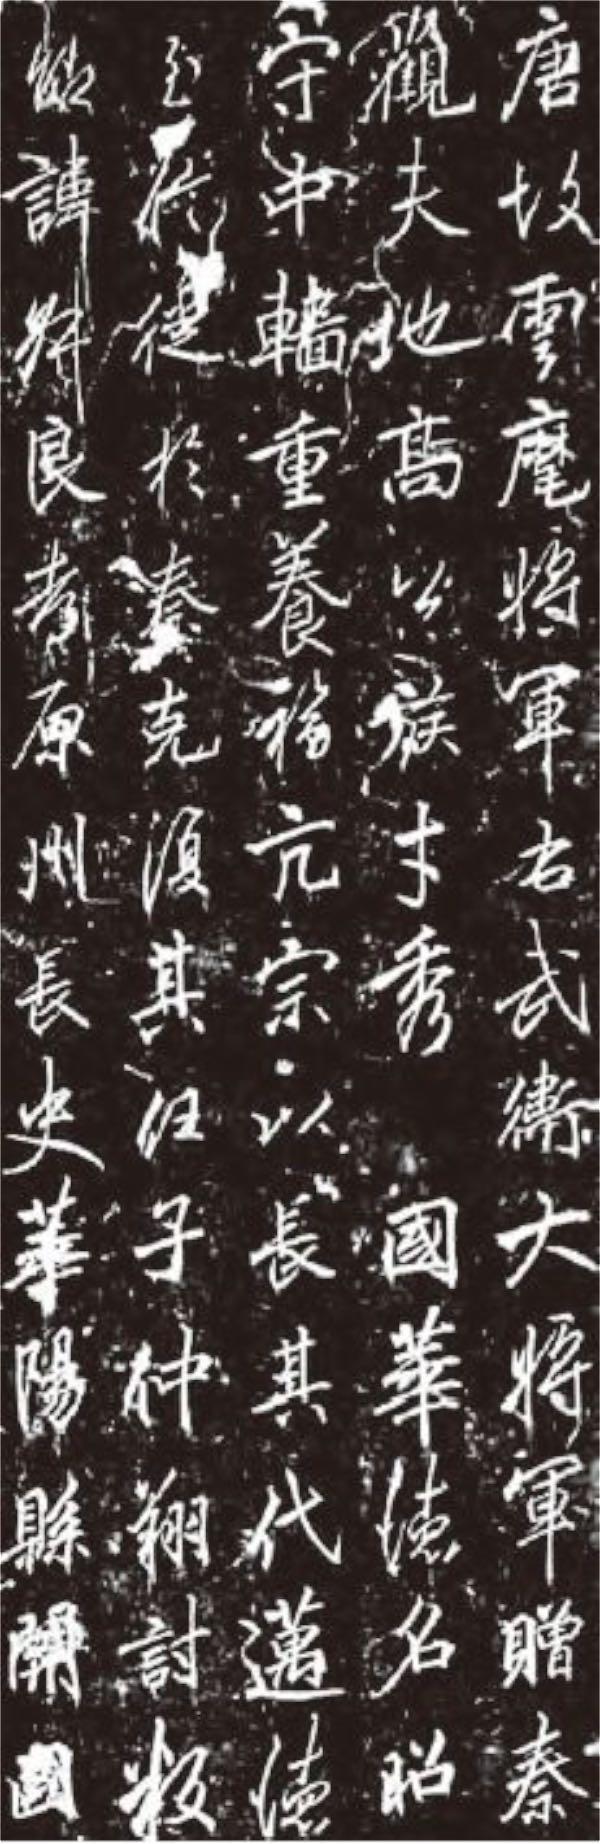 唐故雲麾將軍右武衛大將軍贈秦
觀夫地高以族才秀國華德名昭
守中轖重養福亢宗以長其代邁德
至於徙於秦克復其任子仲翔討叛
諱叔良考原州長史華陽縣開國